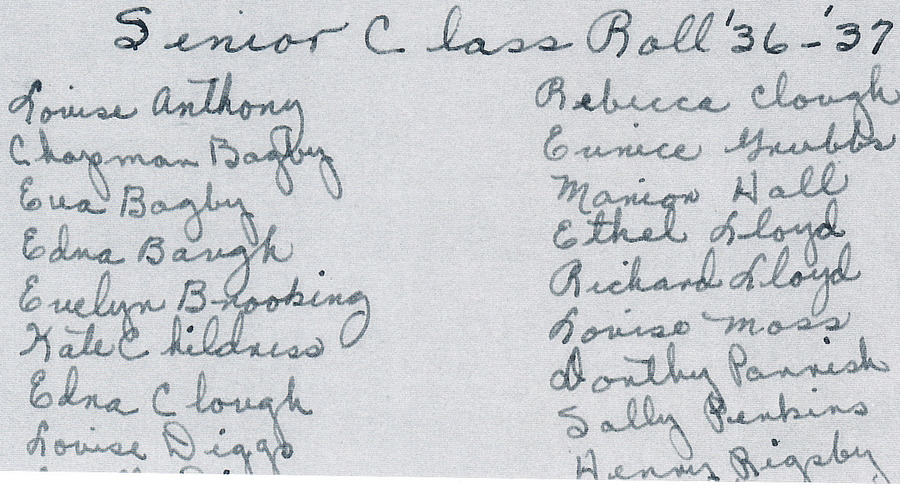 Senior Class Roll '36-'37
Louise Anthony
Chapman Bagby
Eva Bagby
Edna Baugh
Evelyn Brooking
Kate Childress
Edna Clough
Louise Diggs
Rebecca Clough
Eunice Grubbs
Marion Hall
Ethel Lloyd
Richard Lloyd
Louise Moss
Dorthy Parrish
Sally Perkins
Henry Rigsby